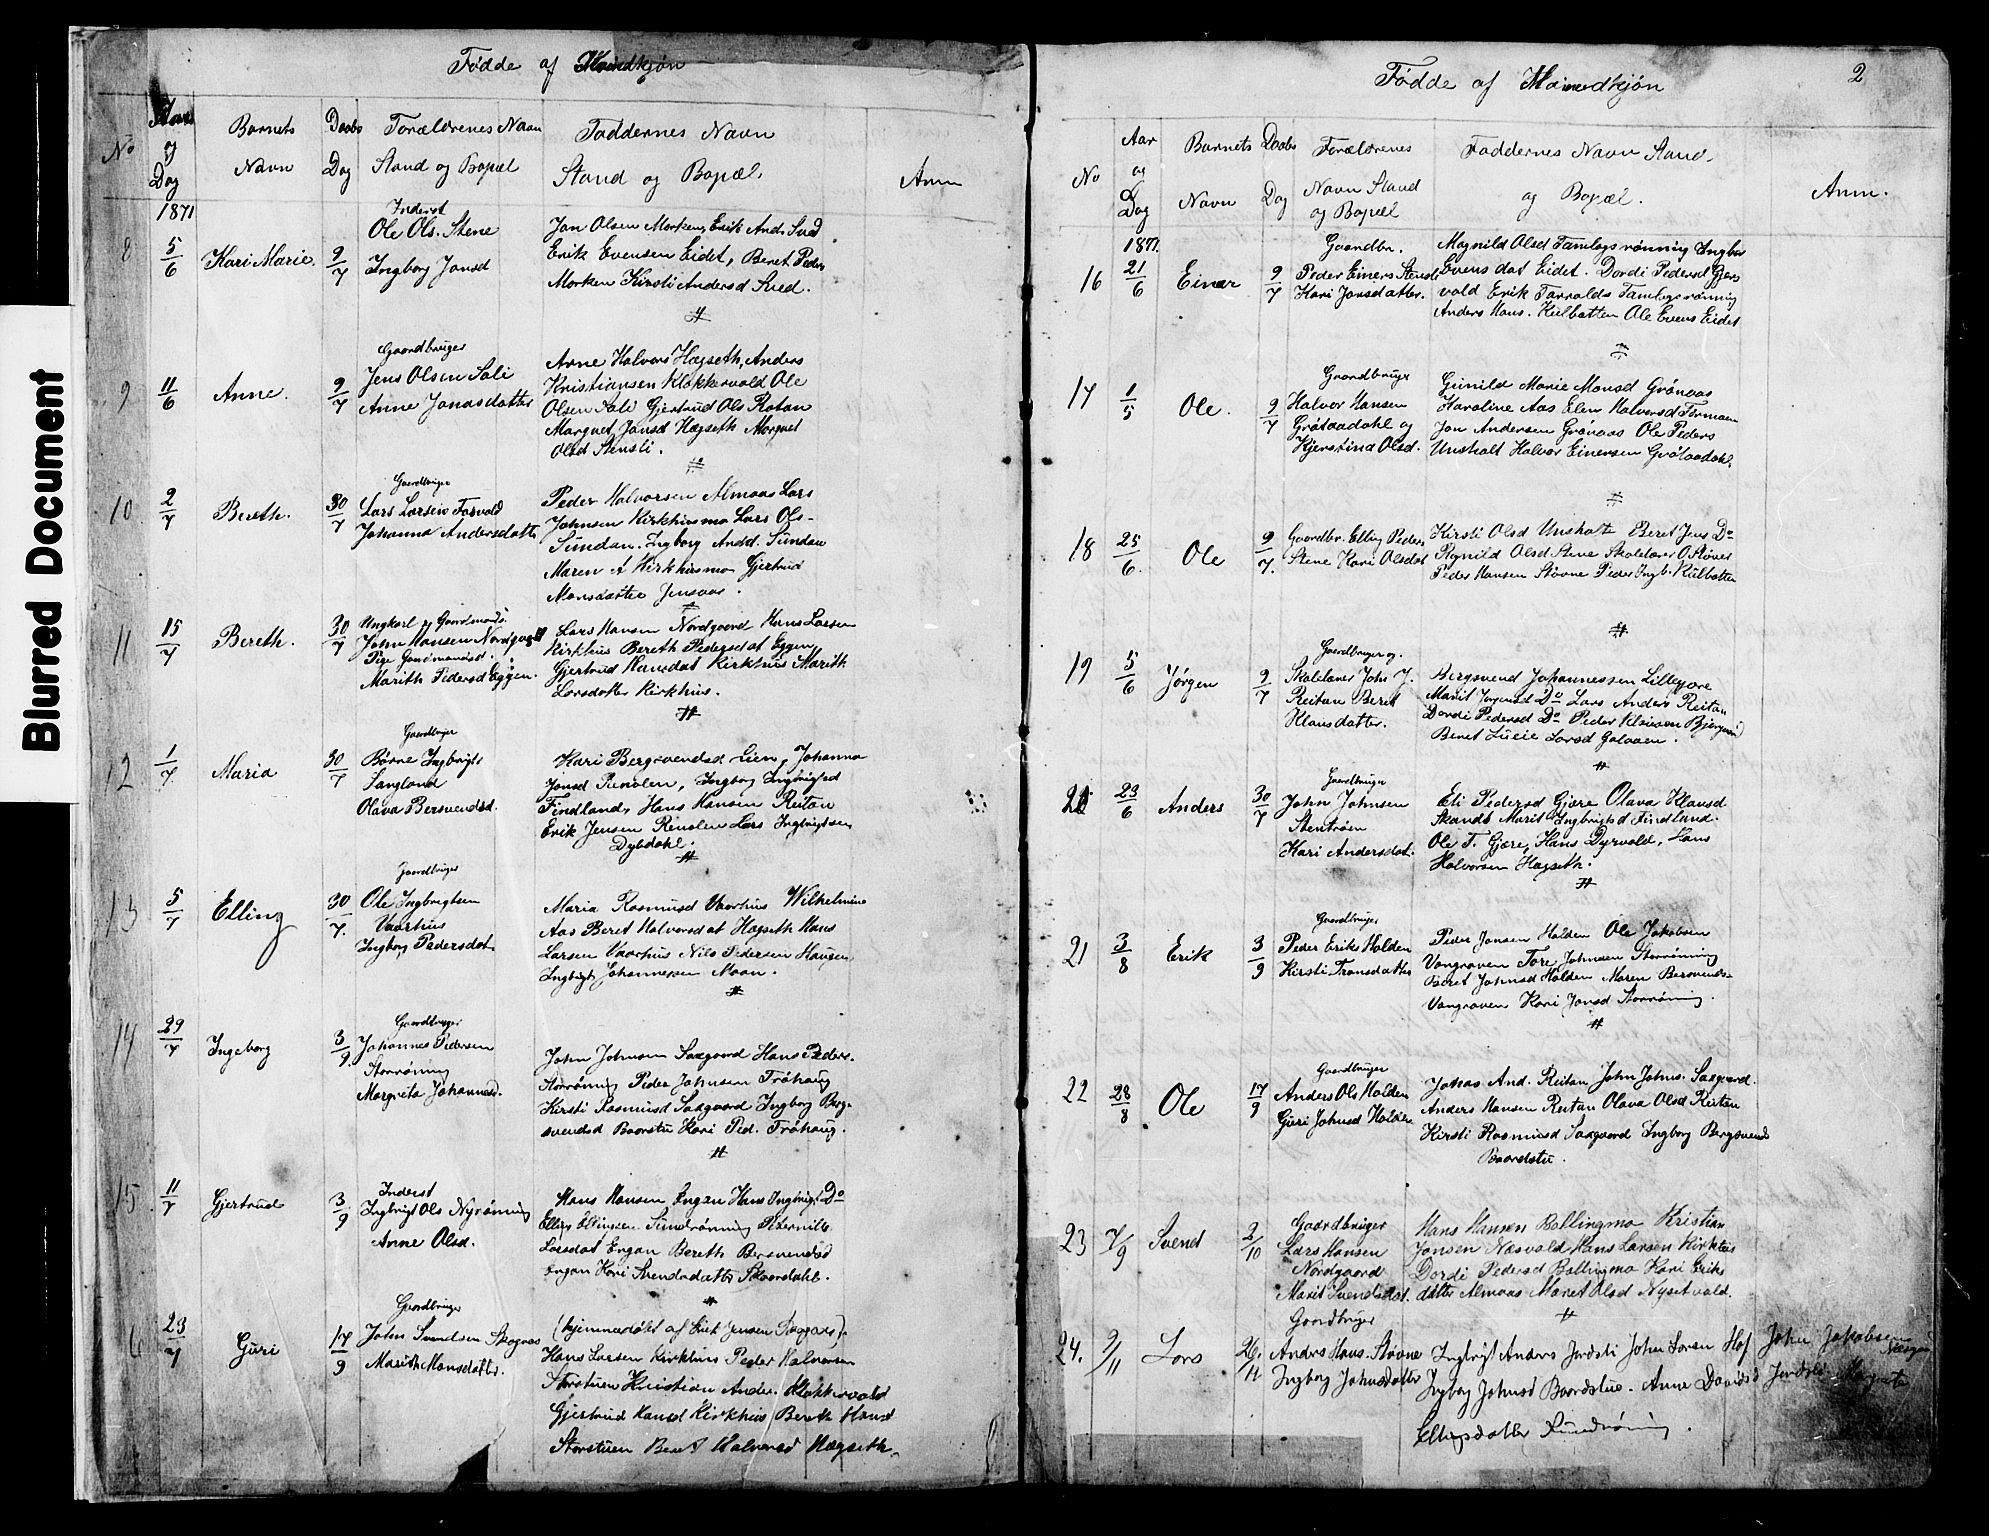 Blurred Document
Fødde af Kvindkjøn
No
Aar
og
Dag
Barnets
Navn
Daabs
Dag
Forældrenes Navn
Stand og Bopæl
Faddernes Navn
Stand og Bopæl.
Anm
1871
8 5/6 Kari Marie. 9/7
Inderst
Ole Ols. Stene
Ingborg Jonsd
Jon Olsen Morken, Erik And. Sved
Erik Evensen Eidet, Beret Peder
Morken Kirsti Andersd Sved.
9 11/6 Anne. 9/7
Gaardbruger
Jens Olsen Sali
Anne Jonasdatter
Arne Halvors Hægseth, Anders
Kristiansen Klokkervold Ole
Olsen Sali Gjertrud Ols Rotan
Margret Jonsd Hægseth Margret
Olsd Stensli.
10 2/7 Bereth. 30/7
Gaardbruger
Lars Larsen Forvold
Johanna Andersdatte
Peder Halvorsen Almaas Lars
Johnsen Kirkhusmo Lars Ols-
Sundan. Ingborg Andd. Sundan
Maren A Kirkhusmo Gjertrud
Monsdatter Jensaas.
11 15/7 Bereth. 30/7
Ungkarl og Gaardmands.
John Hansen Nordgaard
Pige Gaardmandsd.
Marith Pedersd Eggen.
Lars Hansen Nordgaard Hans Larsen
Kirkhus Bereth Pedersdat Eggen
Gjertrud Hansdat Kirkhus Marith
Larsdatter Kirkhus.
12 1/7 Maria 30/7
Gaardbruger
Børne Ingbrigts
Langland
Olava Bersvendsd.
Kari Bergsvendsd Lien, Johanna
Jonsd Renolen, Ingborg Ingbrigtsd
Findland, Hans Hansen Reitan
Erik Jensen Renolen Lars Ingbrigtsen
Dybdahl.
13 5/7 Elling 30/7.
Gaardbruger
Ole Ingbrigtsen
Vaarhus
Ingborg Pedersdat.
Maria Rasmusd Vaarhus Wilhelmine
Aas Beret Halvorsdat Hægseth Hans
Larsen Vaarhus Nils Pedersen Haugen,
Ingbrigt Johannesen Moan.
14 29/7 Ingeborg 3/9
Gaardbruger
Johannes Pedersen
Storrøning
Margreta Johannesd.
John Johnsen Saxgaard Hans Peders.
Storrøning Peder Johnsen Trøhaug
Kirsti Rasmusd Saxgaard Ingborg Berg-
svendsd Baarstu Kari Ped. Trøhaug.
15 11/7 Gjertrud 3/9
Inderst
Ingbrigt Ols Nyrøning
Anne Olsd.
Hans Hansen Engan Hans Ingbrigt. Do
Elling Ellingsen Sundrøning Peternille
Larsdat Engan Bereth Bersvendsd
Engan Kari Svendsdatter Skaardahl.
6 23/7 Guri 17/9
Gaardbruger
John Svendsen Skognæs
Marith Hansdatter.
(hjemmedøbt af Erik Jensen).
Hans Larsen Kirkhus Peder Halvorsen
Storstuen Kristian Anders. Klokkervold
Gjertrud Hansd Kirkhus Bereth Hansd
Storstuen Beret Halvorsd Hægseth.
Fødde af Mandkjøn
2
No
Aar
og
Dag
Barnets
Navn
Daabs
Dag
Forældrenes
Navn Stand
og Bopæl
Faddernes Navn Stand.
og Bopæl.
Anm.
1871.
16 21/6 Einar 9/7
Gaardbr.
Peder Einers Stensli
Kari Jonsdatter.
Magnild Olsd Tamlagsrønning Ingbor
Evensdat Eidet. Dordi Pedersd Gjers
vold Erik Tarralds Tamlagsrønning
Anders Hans. Kulbotten Ole Evens Eidet
17 1/5 Ole. 9/7
Gaardbruge
Halvor Hansen
Grøtaadahl og
Kjerstina Olsd.
Gunild Marie Monsd Grønaas
Karoline Aas Elen Halvorsd Forman
Jon Andersen Grønaas Ole Peders
Unsholt Halvor Einersen Grøtaadahl.
18 25/6. Ole 9/7.
Gaardbr. Elling Peders
Stene Kari Olsdat
Kirsti Olsd Unsholt Beret Jens Do
Ragnild Olsd Stene Skolelærer O Støvne
Peder Hansen Støvne Peder Ingb. Kulbotten
19 5/6 Jørgen 9/7
Gaardbruger og.
Skolelærer John J.
Reitan Beret
Klausdatter.
Bergsvend Johannessen Lillegjøre
Marit Jørgensd Do Lars Anders Reitan
Dordi Pedersd Do Peder Klausen
Beret Lucie Larsd Galaaen.
20 23/6 Anders 30/7
Gaardbruger
John Johnsen
Stentrøen
Kari Andersdat.
Eli Pedersd Gjære Olava Klausd
Skandt Marit Ingbrigtsd Findland.
Ole T. Gjære, Hans Dyrvold, Hans
Halvorsen Hægseth.
21 3/8 Erik 3/9
Gaardbruger
Peder Eriks Holden
Kirsti Transdatter
Peder Jonsen Holden Ole Jakobsen
Vangraven Tore Johnsen Storrønning
Beret Johnsd Holden Maren Bersvends-
Vangraven Kari Jonsd Storrøning.
22 28/8 Ole 17/9
Gaardbruger
Anders Ols Holden
Guri Johnsd Holden
Jonas And. Reitan John Johns. Saxgaard.
Anders Hansen Reitan Olava Olsd Reitan
Kirsti Rasmusd Saxgaard Ingborg Bergsvends
Baardstu.
23 7/9 Svend 2/10
Gaardbruger
Lars Hansen
Nordgaard
Marit Svendsdat.
Hans Hansen Bollingmo Kristian
Jonsen Næsvold Hans Larsen Kirkhus
Dordi Pedersd Bollingmo Kari Eriks
datter Almaas Maret Olsd Nysetvold.
24. 9/11 Lars 26/11
Gaardbruger
Anders Hans. Støvne
Ingborg Johnsdatter
Ingbrigt Anders Jordsli John Larsen Hof John Jakobsen
Ingborg Johnsd Baardstue. Anne Davidsd Jordsli Margrete
Ellingsdatter Sundrøning.